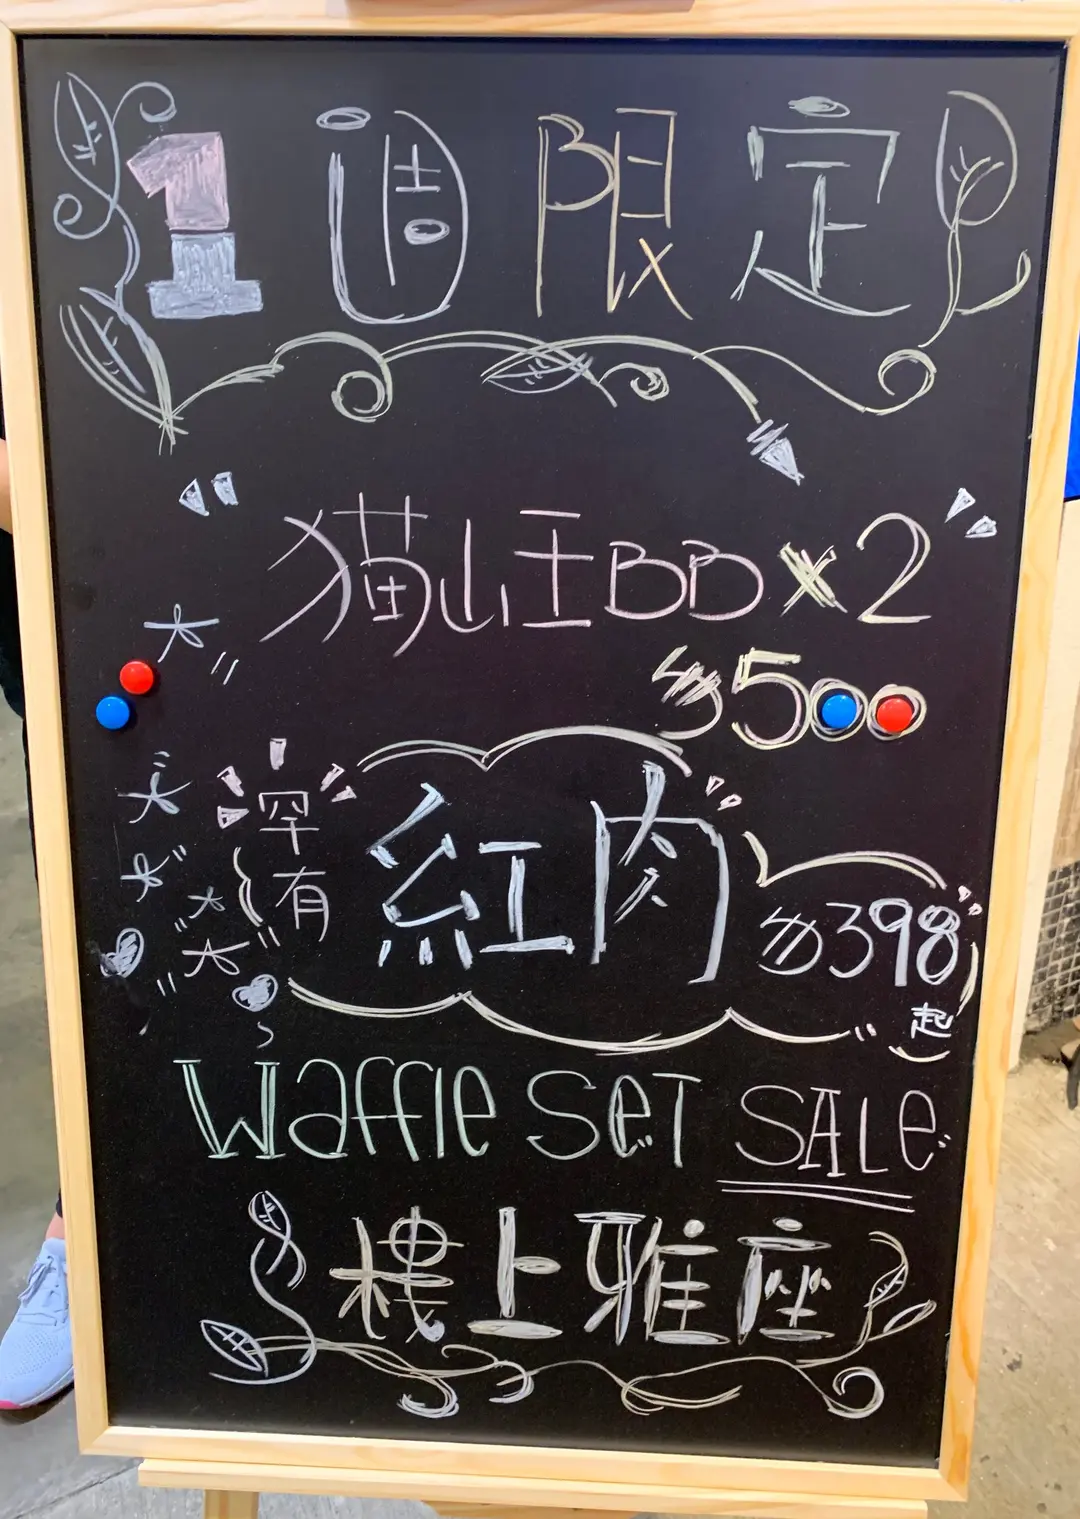 1週限定
猫山王BB x 2
$500
罕有 紅肉 $398起
Waffle SeT SALe
樓上雅座